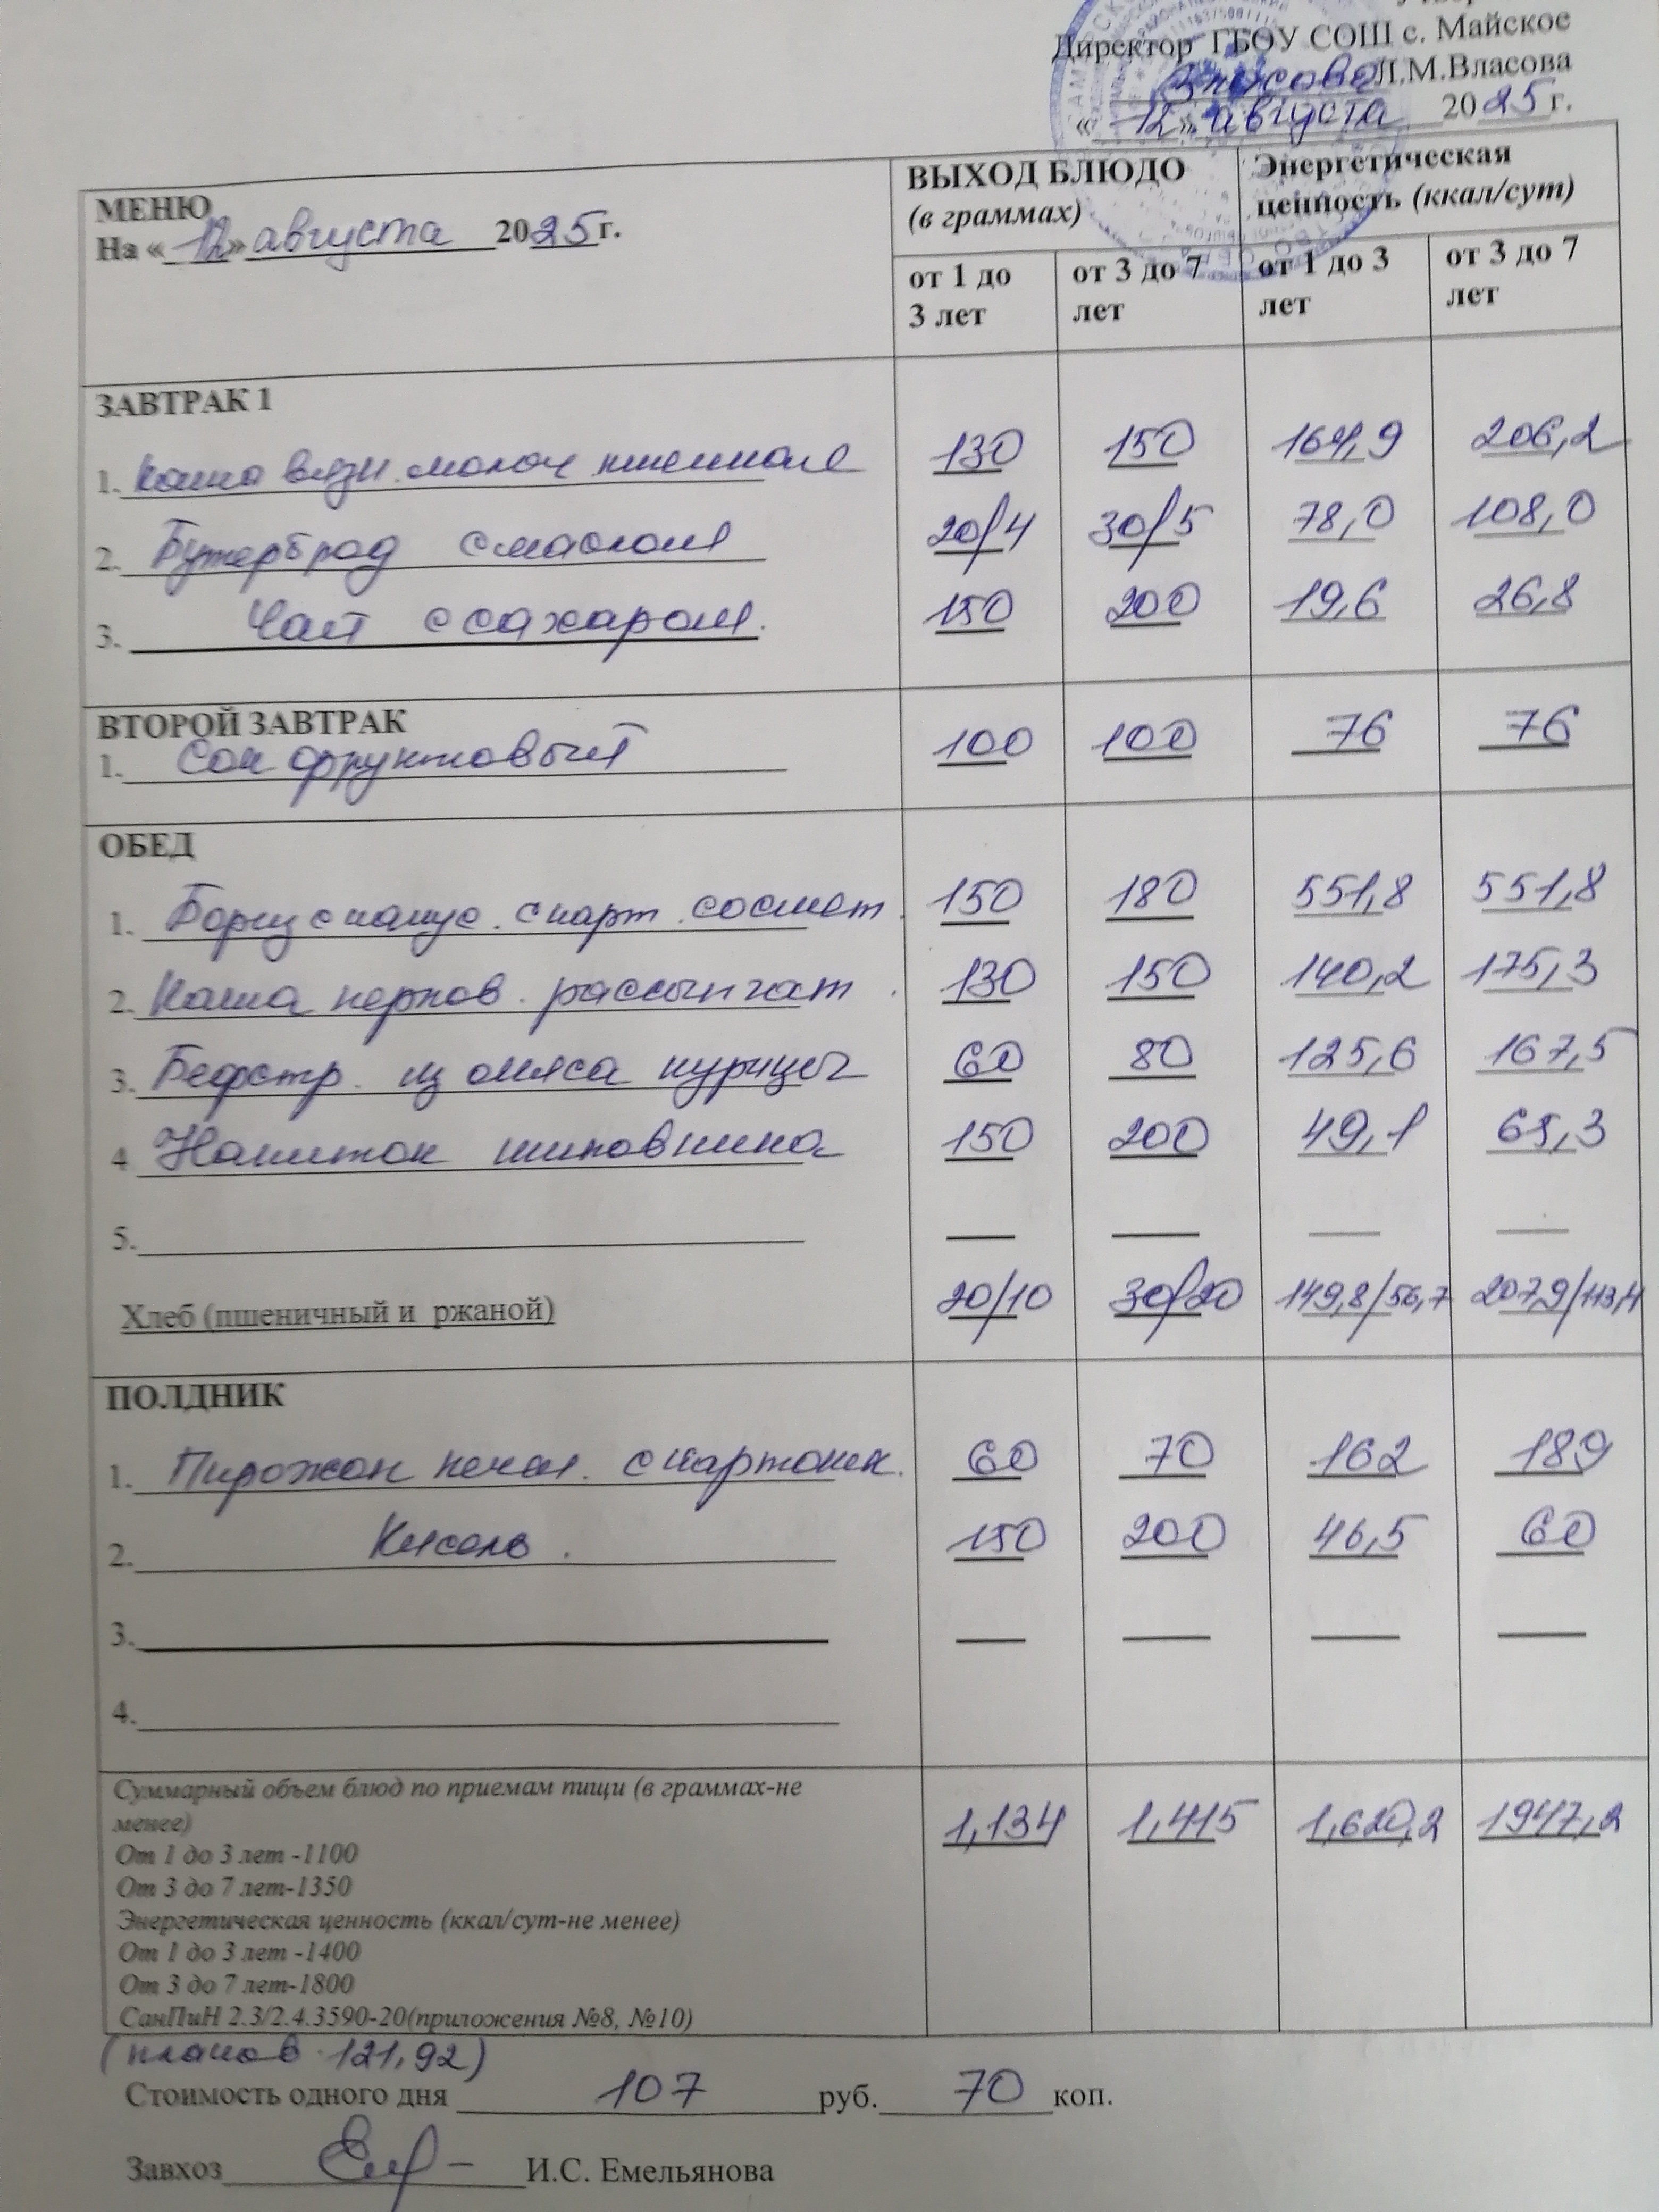 Директор ГБОУ СОШ с. Майское
Л.М.Власова
«12» августа 2025 г.
МЕНЮ
На «12» августа 2025 г.
ВЫХОД БЛЮДО (в граммах)
Энергетическая ценность (ккал/сут)
от 1 до 3 лет от 3 до 7 лет от 1 до 3 лет от 3 до 7 лет
ЗАВТРАК 1
1. Каша вязк. молоч пшенная 130 150 164,9 206,2
2. Бутерброд с маслом 20/4 30/5 78,0 108,0
3. Чай с сахаром. 150 200 19,6 26,8
ВТОРОЙ ЗАВТРАК
1. Сок фруктовый 100 100 76 76
ОБЕД
1. Борщ с капус. с карт. со смет. 150 180 551,8 551,8
2. Каша перлов. рассыпчат. 130 150 140,2 175,3
3. Бефстр. из мяса курицы 60 80 125,6 167,5
4 Напиток шиповника 150 200 49,1 65,3
5. — — — —
Хлеб (пшеничный и ржаной) 20/10 30/20 149,8/56,7 207,9/113,4
ПОЛДНИК
1. Пирожок печен. с картошк. 60 70 162 189
2. Кисель. 150 200 46,5 60
3. — — — —
4.
Суммарный объем блюд по приемам пищи (в граммах-не
менее) 1,134 1,415 1,620,2 1947,2
От 1 до 3 лет -1100
От 3 до 7 лет-1350
Энергетическая ценность (ккал/сут-не менее)
От 1 до 3 лет -1400
От 3 до 7 лет-1800
СанПиН 2.3/2.4.3590-20(приложения №8, №10)
(планов 121,92)
Стоимость одного дня 107 руб. 70 коп.
Завхоз И.С. Емельянова